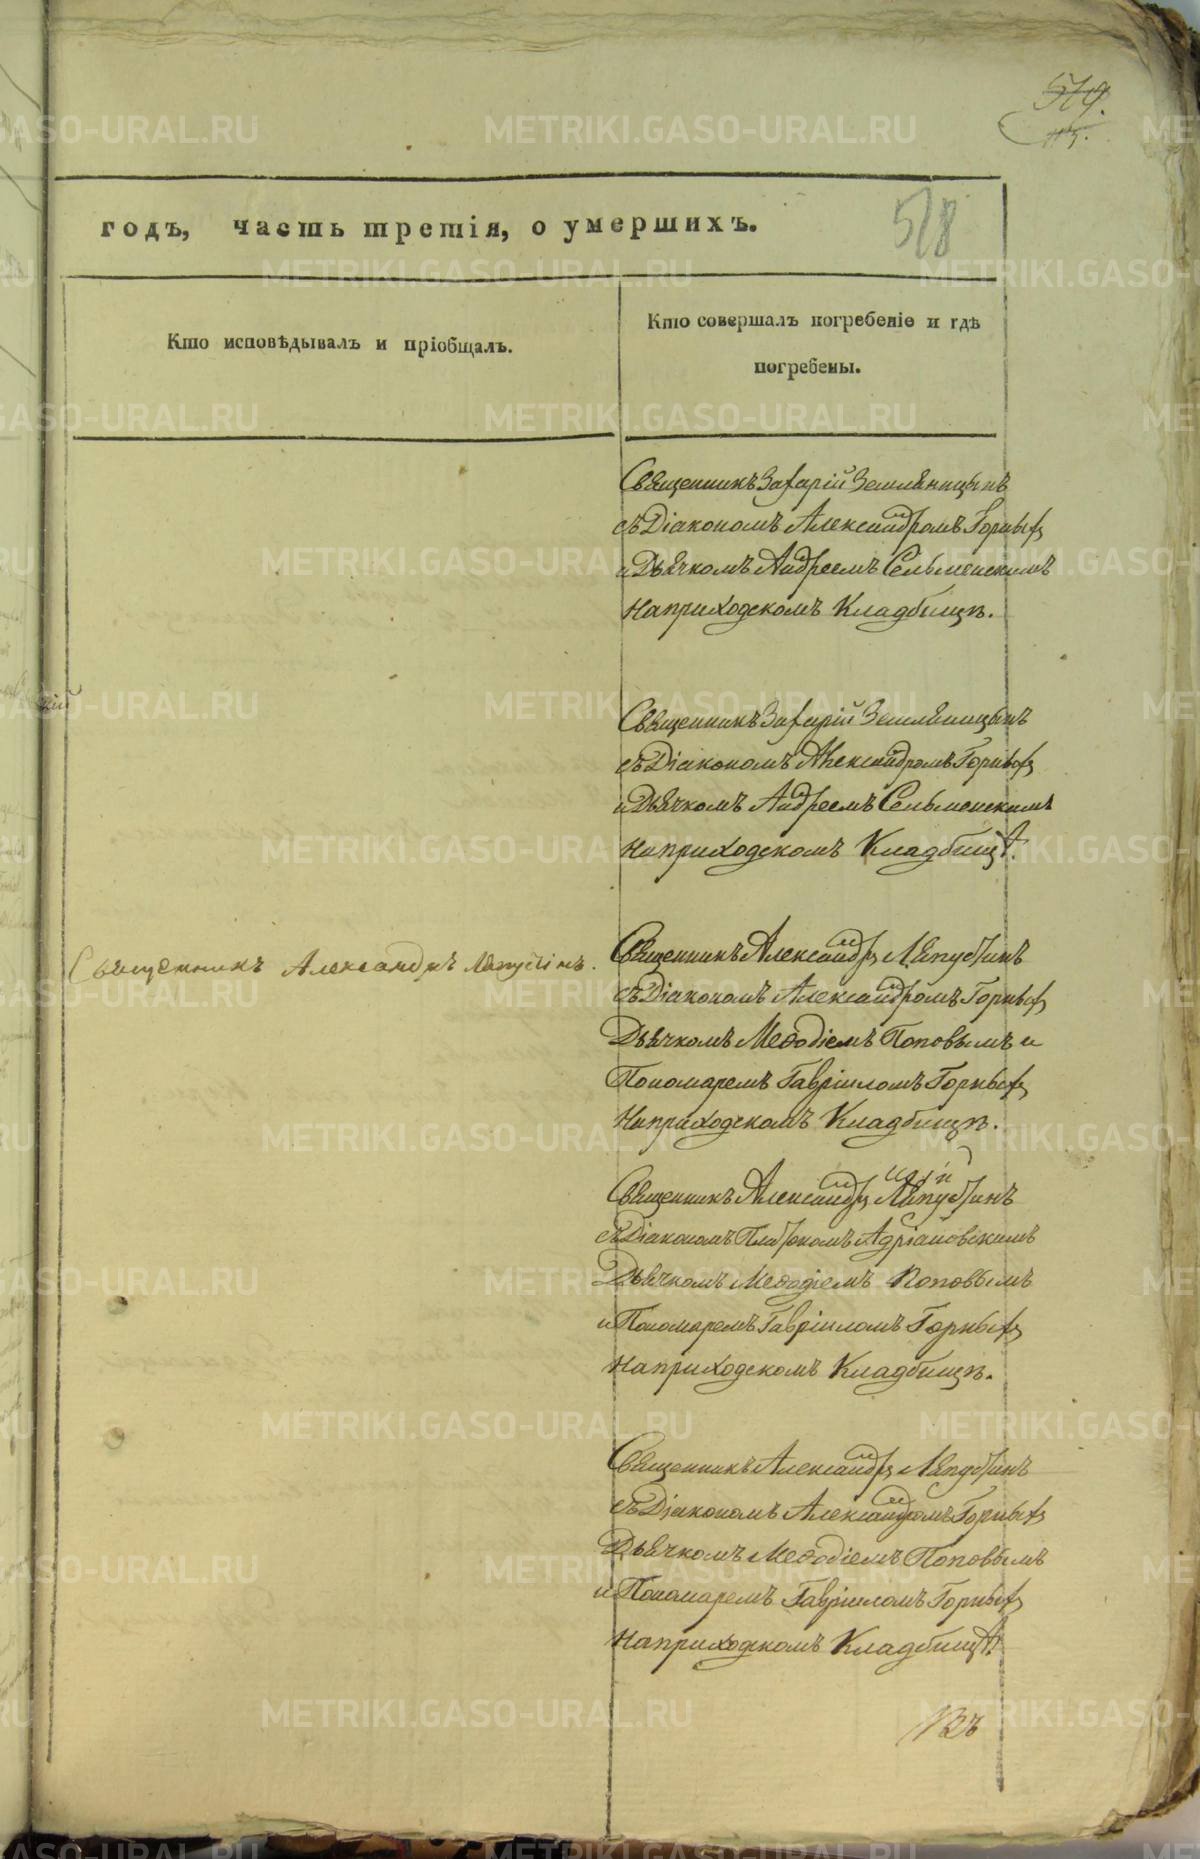 519.
115.
518
годъ, часть третія, о умершихъ.
Кто исповѣдывалъ и пріобщалъ.
Кто совершалъ погребеніе и гдѣ
погребены.
Священникъ Захарій Земляницынъ
съ Діакономъ Александромъ Горныхъ
и Дьячкомъ Андреемъ Сельменскимъ
На приходскомъ Кладбищѣ.
Священникъ Захарій Земляницынъ
съ Діакономъ Александромъ Горныхъ
и Дьячкомъ Андреемъ Сельменскимъ
На приходскомъ Кладбищѣ.
Священникъ Александръ Ляпустинъ.
Священникъ Александръ Ляпустинъ
съ Діакономъ Александромъ Горныхъ
Дьячкомъ Меѳодіемъ Поповымъ и
Пономаремъ Гавріиломъ Горныхъ
На приходскомъ Кладбищѣ.
Священникъ Александръ Ляпустинъ
съ Діакономъ Платономъ Адріановскимъ
Дьячкомъ Меѳодіемъ Поповымъ
и Пономаремъ Гавріиломъ Горныхъ
На приходскомъ Кладбищѣ.
Священникъ Александръ Ляпустинъ
съ Діакономъ Александромъ Горныхъ
Дьячкомъ Меѳодіемъ Поповымъ
и Пономаремъ Гавріиломъ Горныхъ
На приходскомъ Кладбищѣ.
METRIKI.GASO-URAL.RU